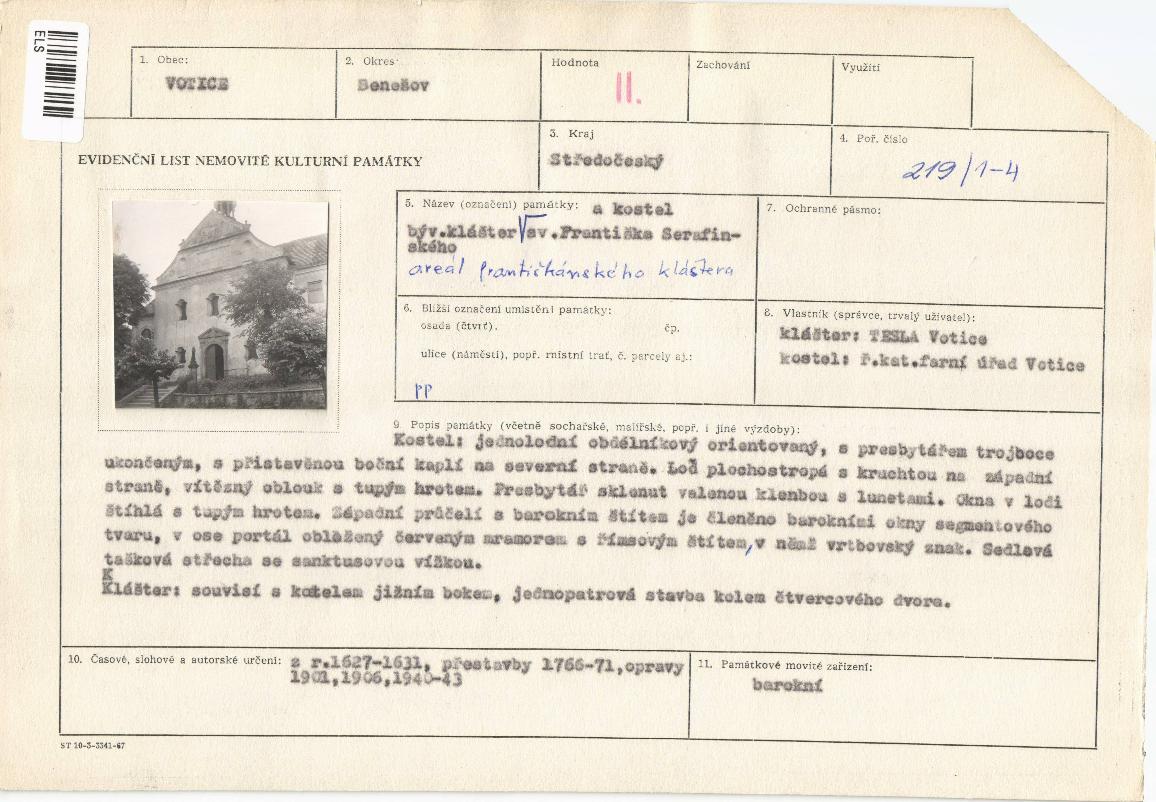 ELS
1. Obec:
VOTICE
2. Okres
Benešov
Hodnota
II.
Zachování
Využití
EVIDENČNÍ LIST NEMOVITÉ KULTURNÍ PAMÁTKY
3. Kraj
Středočeský
4. Poř. číslo
219/1-4
5. Název (označení) památky: a kostel
býv.klášter sv.Františka Serafin-
ského
areál františkánského kláštera
7. Ochranné pásmo:
6. Bližší označení umístění památky:
osada (čtvrť). čp.
ulice (náměstí), popř. místní trať, č. parcely aj.:
PP
8. Vlastník (správce, trvalý uživatel):
klášter: TESLA Votice
kostel: ř.kat.farní úřad Votice
9. Popis památky (včetně sochařské, malířské, popř. i jiné výzdoby):
Kostel: jednolodní obdélníkový orientovaný, s presbytářem trojboce
ukončeným, s přistavěnou boční kaplí na severní straně. Loď plochostropá s kruchtou na západní
straně, vítězný oblouk s tupým hrotem. Presbytář sklenut valenou klenbou s lunetami. Okna v lodi
štíhlá s tupým hrotem. Západní průčelí s barokním štítem je členěno barokními okny segmentového
tvaru, v ose portál obložený červeným mramorem s římsovým štítem, v němž vrtbovský znak. Sedlová
tašková střecha se sanktusovou vížkou.
K
Klášter: souvisí s kostelem jižním bokem, jednopatrová stavba kolem čtvercového dvora.
10. Časové, slohové a autorské určení: z r.1627-1631, přestavby 1766-71,opravy
1901,1906,1940-43
11. Památkové movité zařízení:
barokní
ST 10-3-3341-67